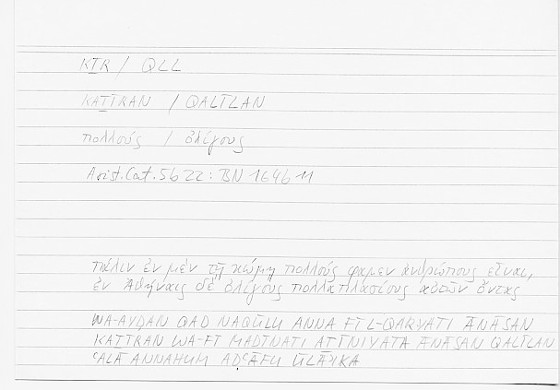 KṮR / QLL
KAṮĪRAN / QALĪLAN
πολλούς / ὀλίγους
Arist. Cat. 5b22 : BN 164b11
πάλιν ἐν μὲν τῇ κώμῃ πολλούς φαμεν ἀνθρώπους εἶναι,
ἐν Ἀθήναις δὲ ὀλίγους πολλαπλασίους αὐτῶν ὄντας
WA-AYḌAN QAD NAQŪLU ANNA FĪ L-QARYATI ĀNĀSAN
KAṮĪRAN WA-FĪ MADĪNATI AṮĪNIYATA ĀNĀSAN QALĪLAN
ʿALĀ ANNAHUM AḌʿĀFU ŪLĀʾIKA